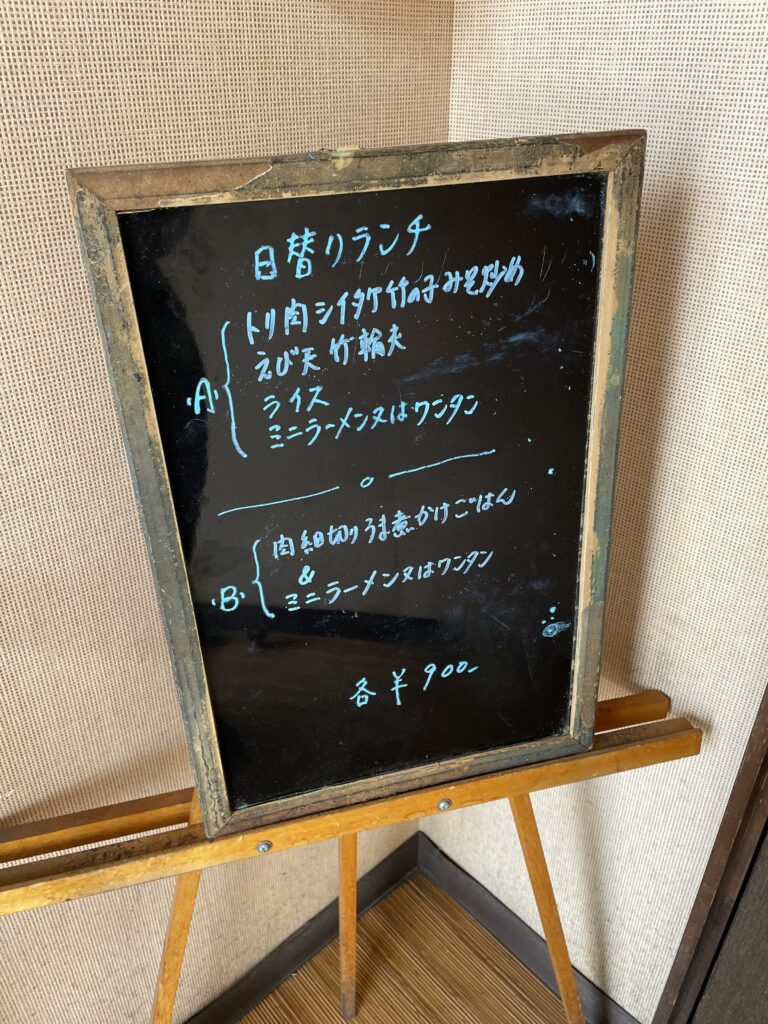 日替りランチ
トリ肉シイタケ竹の子みそ炒め
えび天 竹輪天
・A・
ライス
ミニラーメン又はワンタン
肉細切りうま煮かけごはん
&
・B・
ミニラーメン又はワンタン
各 ¥900-